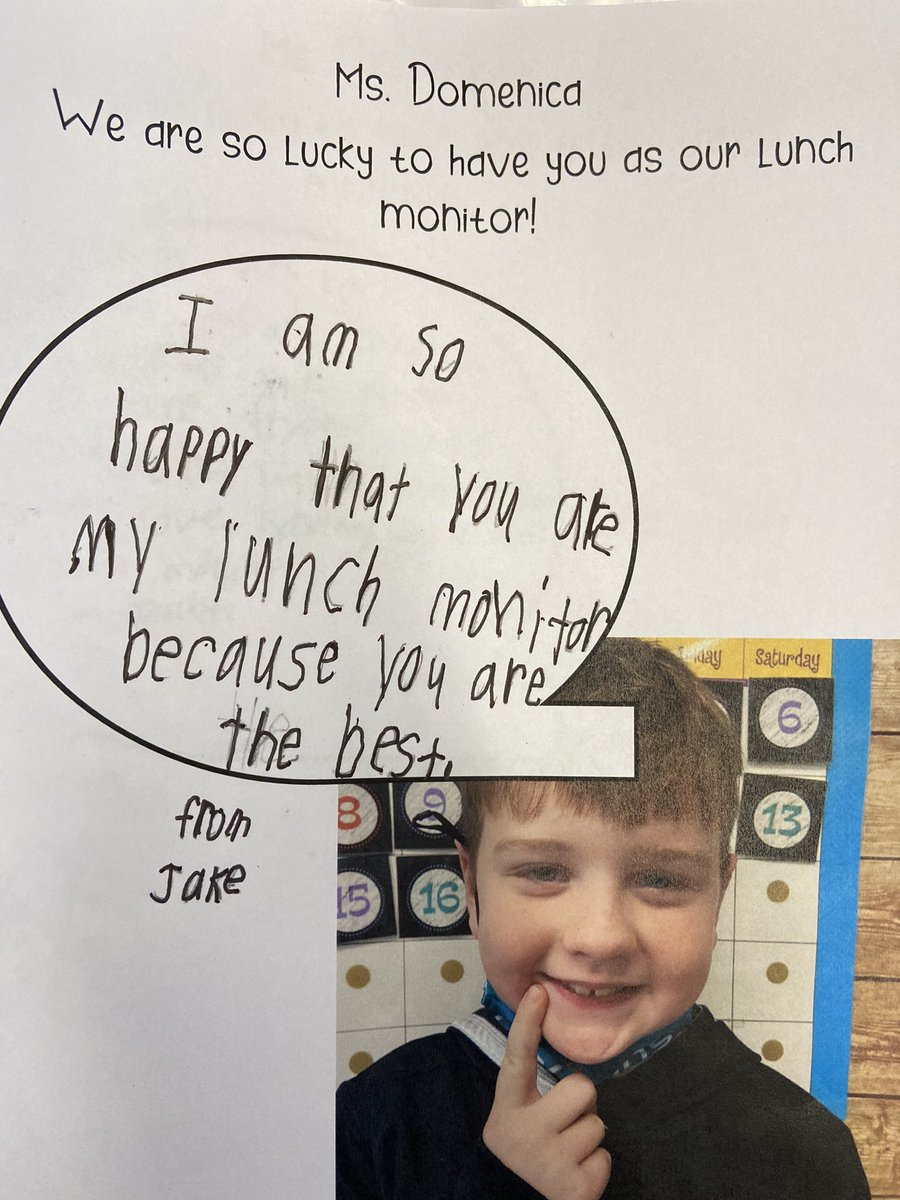 Ms. Domenica
We are so Lucky to have you as our Lunch
monitor!
I am so
happy that you are
my lunch monitor
because you are
the best.
from
Jake
Saturday
6
8 9
13
15 16